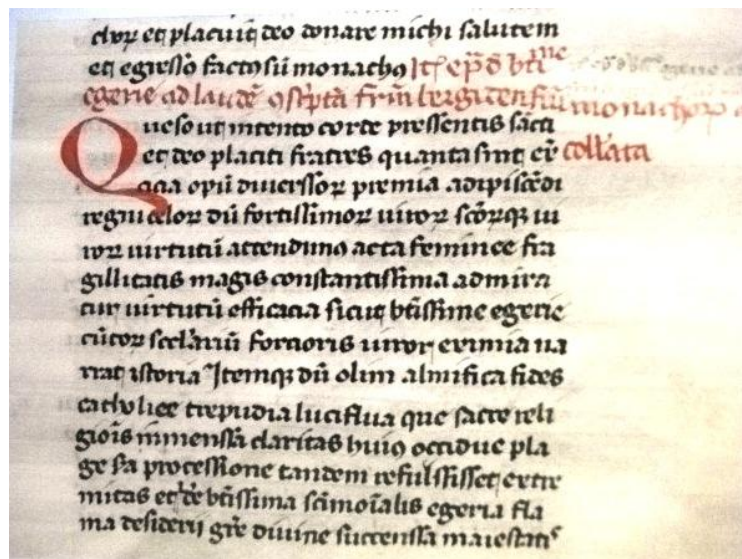 et placuit deo donare michi salutem
et egressꝰ factꝰ sū monachꝰ It̄ ep̄d bt̄ime
egerie ad laudē ꝯsc̄pta fr̄m bergidensiū monachoꝝ
Queso ut intento corde pressentis sācti
et deo placiti fratres quanta sint exͬ collata
citia opū diuerssoꝝ premia adipiscēdi
regni celoꝝ dū fortissimoꝝ uiroꝝ scōꝝqꝫ ui
roꝝ uirtutū attendimꝰ acta feminee fra
gillitatis magis constantissima admira
tur uirtutū efficacia sicut bt̄issime egerie
cūtoꝝ sc̄lariū fortioris uiroꝝ eximia na
rrat istoria Itemqꝫ dū olim almifica fides
catholice trepudia luciflua que sacre reli
giōis inmenssa claritas huiꝰ occidue pla
ge ẜa processione tandem refulssisset extre
mitas et bt̄issima sc̄imōialis egeria fla
ma desiderii gr̄e diuine succenssa maiestatis